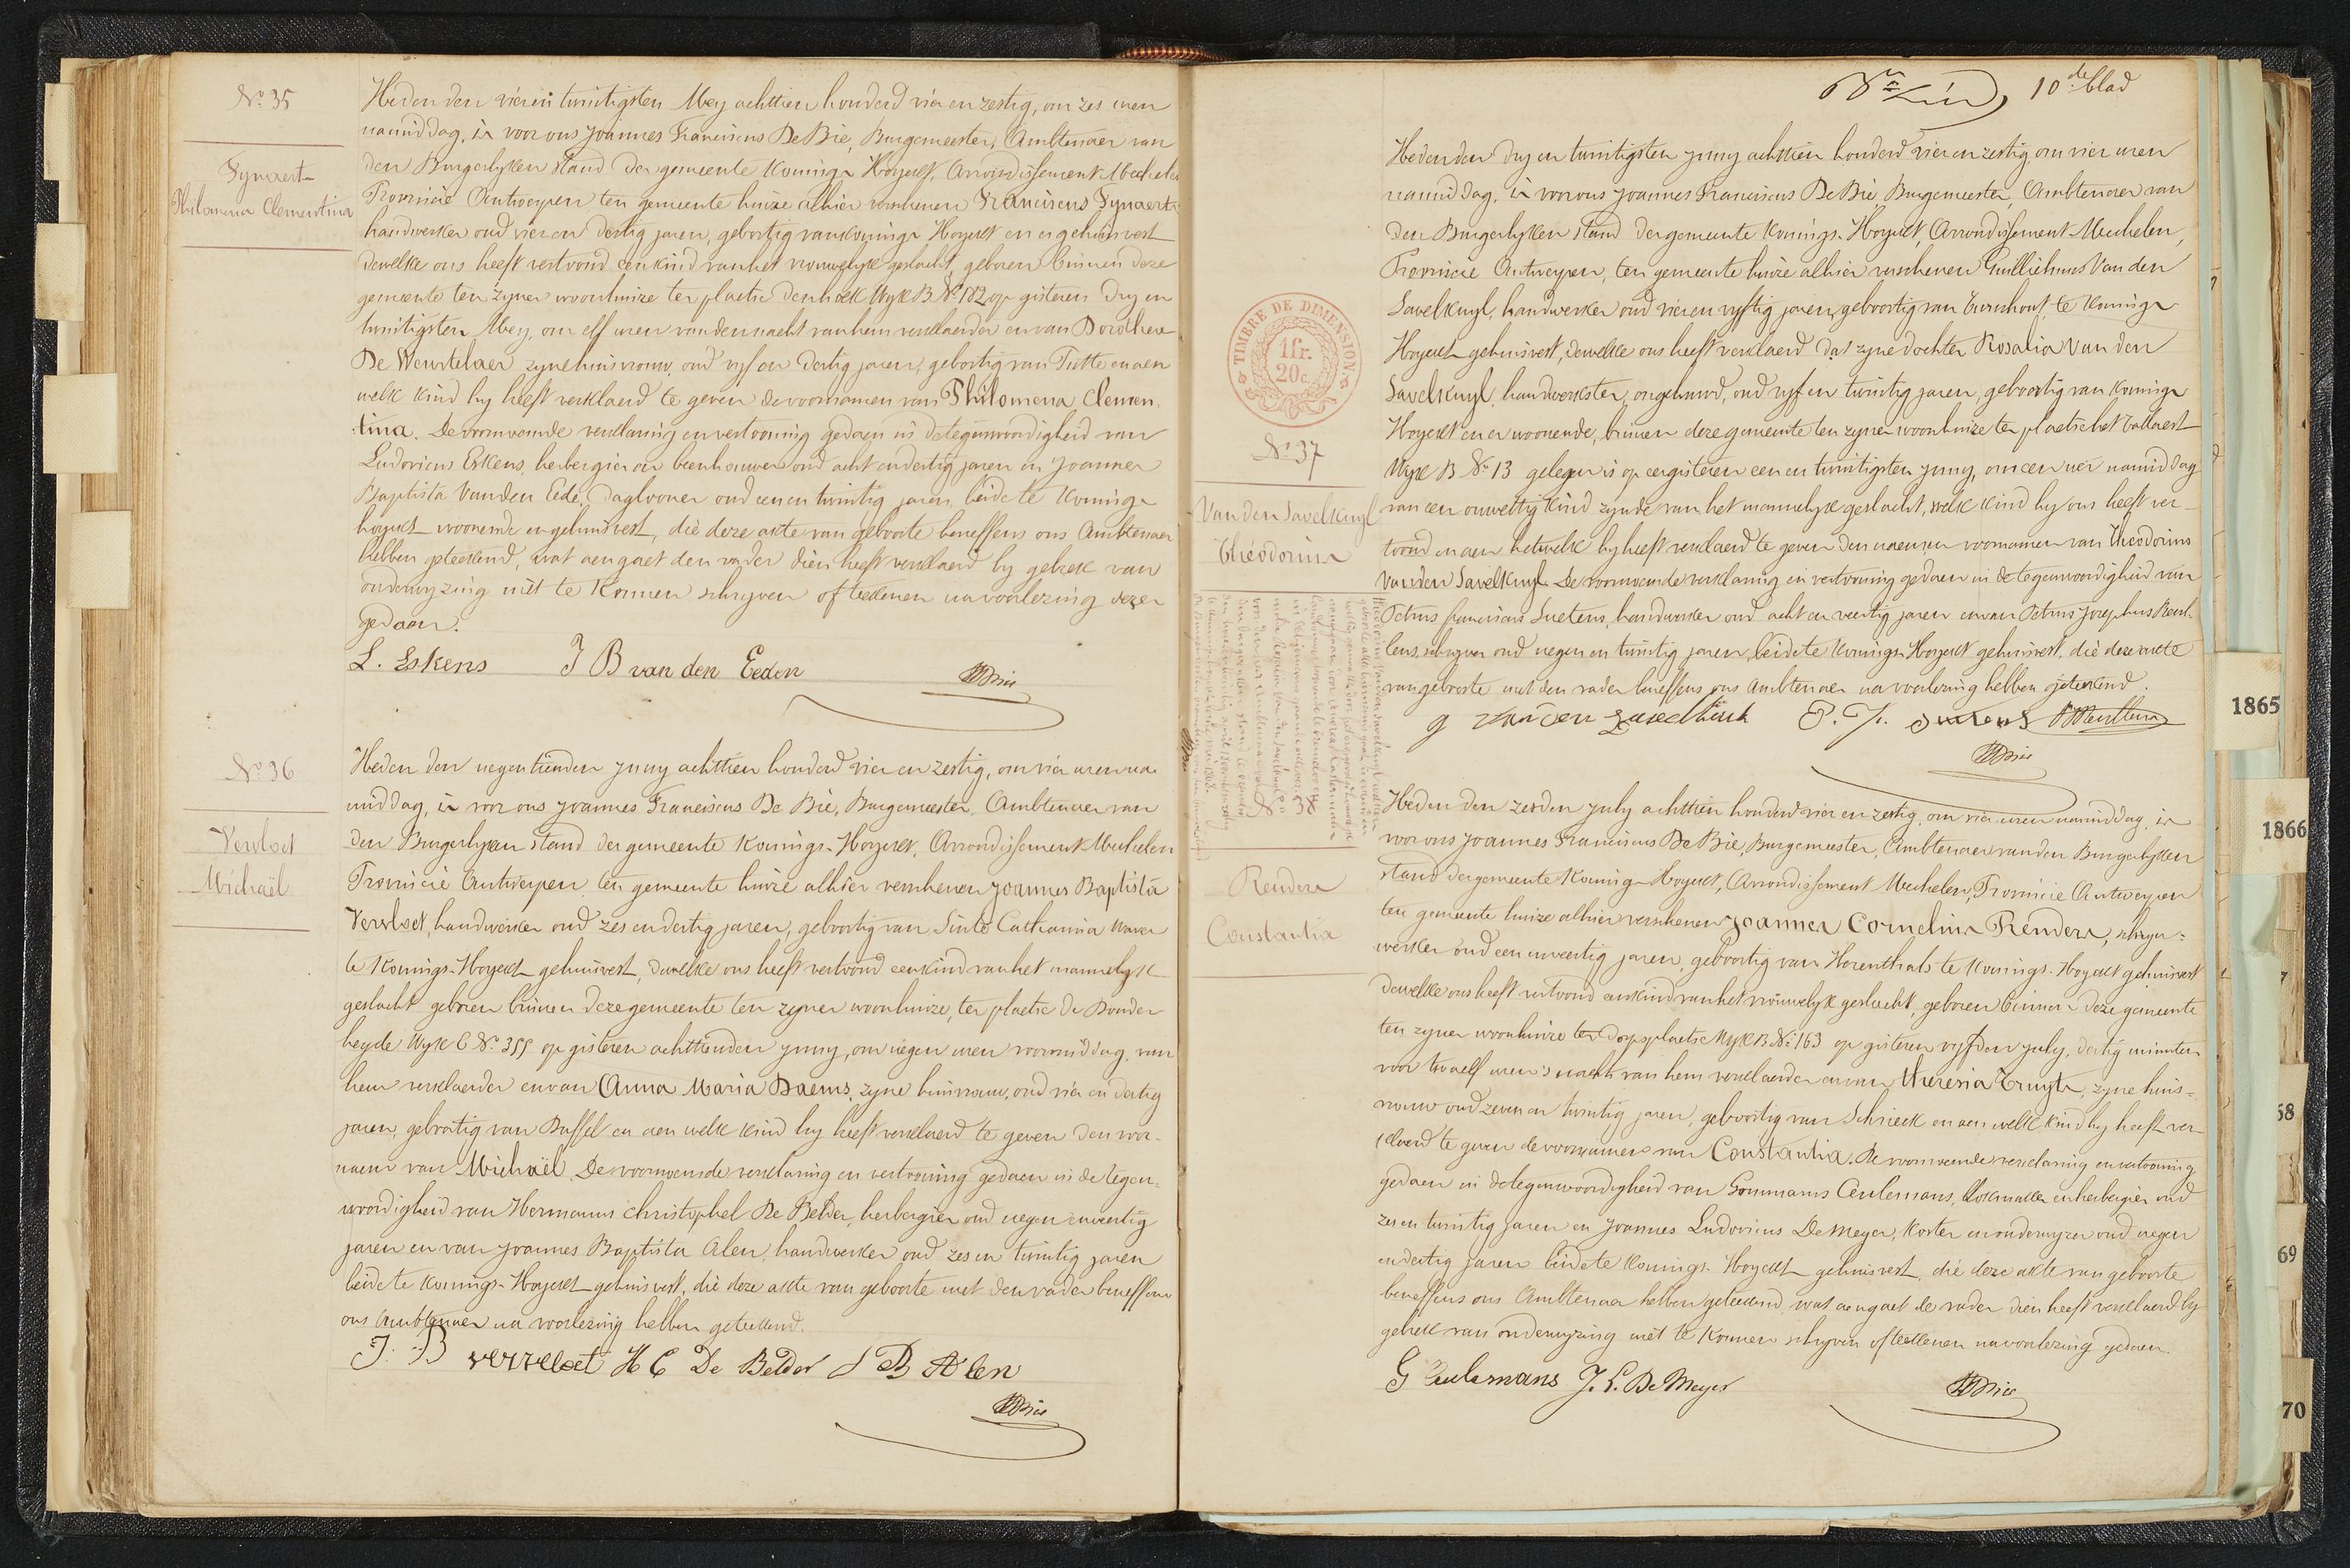 N° 35
Fynaerts
Philomena Clementina
Heden den vier en twintigsten Mey achttien honderd vier en zestig, om zes uren
namiddag, is voor ons Joannes Franciscus De Bie, Burgemeester, Ambtenaer van
den Burgerlyken stand der gemeente Konings Hoyckt, Arrondissement Mechelen
Provincie Antwerpen ten gemeente huize alhier verschenen Franciscus Fynaerts
handwerker oud vier en dertig jaren, geboortig van Konings Hoyckt en er gehuisvest
dewelke ons heeft vertoond een kind van het vrouwelyk geslacht, geboren binnen deze
gemeente ten zynen woonhuize ter plaetse den hoek Wyk B N° 182 op gisteren dry en
twintigsten Mey, om elf uren van den nacht van hem verklaerder en van Dorothea
De Weurtelaer zyne huisvrouw, oud vyf en dertig jaren, geboortig van Putte en aen
welk kind hy heeft verklaerd te geven de voornamen van Philomena Clemen-
tina. De voornoemde verklaring en vertooning gedaen in de tegenwoordigheid van
Ludovicus Eskens, herbergier en beenhouwer oud acht en dertig jaren en Joannes
Baptista Van den Eede, daglooner oud een en twintig jaren beide te Konings
hoyckt woonende en gehuisvest, die deze akte van geboorte beneffens ons Ambtenaer
hebben geteekend, wat aengaet den vader dien heeft verklaerd by gebrek van
onderwyzing niet te konnen schryven of teekenen na voorlezing dezer
gedaen.
L. Eskens J B van den Eeden DBie
N° 36
Vervloet
Michaël
Heden den negentienden Juny achttien honderd vier en zestig, om vier uren na-
middag, is voor ons Joannes Franciscus De Bie, Burgemeester, Ambtenaer van
den Burgerlyken stand der gemeente Konings-Hoyckt, Arrondissement Mechelen
Provincie Antwerpen ten gemeente huize alhier verschenen Joannes Baptista
Vervloet, handwerker oud zes en dertig jaren, geboortig van Sinte Catharina Waver
te Konings-Hoyckt gehuisvest, dewelke ons heeft vertoond een kind van het mannelyk
geslacht geboren binnen deze gemeente ten zynen woonhuize, ter plaetse de Bonder
heyde Wyk C N° 355 op gisteren achttienden Juny, om negen uren voormiddag, van
hem verklaerder en van Anna Maria Daems, zyne huisvrouw, oud vier en dertig
jaren, geboortig van Duffel en aen welk kind hy heeft verklaerd te geven den voor-
naem van Michaël. De voornoemde verklaring en vertooning gedaen in de tegen-
woordigheid van Hermanus Christophel De Belder, herbergier oud negen en veertig
jaren en van Joannes Baptista Alen, handwerker oud zes en twintig jaren
beide te Konings-Hoyckt gehuisvest, die deze akte van geboorte met den vader beneffens
ons Ambtenaer na voorlezing hebben geteekend.
J. B vervloet H C De Belder J B Alen
DBie
10de blad
TIMBRE DE DIMENSION.
1fr.
20c.
N° 37
Van den Savelkuyl
Théodorus
Heden den dry en twintigsten Juny achttien honderd vier en zestig om vier uren
namiddag, is voor ons Joannes Franciscus De Bie, Burgemeester, Ambtenaer van
den Burgerlyken stand der gemeente Konings-Hoyckt, Arrondissement Mechelen,
Provincie Antwerpen, ten gemeente huize alhier verschenen Guillielmus Van den
Savelkuyl, handwerker oud vier en vyftig jaren, geboortig van Turnhout te Konings
Hoyckt gehuisvest, dewelke ons heeft verklaerd dat zyne dochter Rosalia Van den
Savelkuyl, handwerkster, ongehuwd, oud vyf en twintig jaren, geboortig van Konings
Hoyckt en er woonende, binnen deze gemeente ten zynen woonhuize ter plaetse het
Wyk B N° 13 gelegen is op eergisteren een en twintigsten Juny, om een uer namiddag
van een onwettig kind zynde van het mannelyk geslacht, welk kind hy ons heeft ver-
toond en aen hetwelk hy heeft verklaerd te geven den naem en voornamen van Théodorus
Van den Savelkuyl. De voornoemde verklaring en vertooning gedaen in de tegenwoordigheid van
Petrus Franciscus Suetens, handwerker oud acht en veertig jaren en van Petrus Josephus
schryver oud negen en twintig jaren, beide te Konings-Hoyckt gehuisvest, die deze akte
van geboorte met den vader beneffens ons Ambtenaer na voorlezing hebben geteekend.
DBie
N° 38
Renders
Constantia
Heden den zesden July achttien honderd vier en zestig, om vier uren namiddag, is
voor ons Joannes Franciscus De Bie, Burgemeester, Ambtenaer van den Burgerlyken
stand der gemeente Konings-Hoyckt, Arrondissement Mechelen, Provincie Antwerpen
ten gemeente huize alhier verschenen Joannes Cornelius Renders, schryn-
werker oud een en veertig jaren, geboortig van Herenthals te Konings-Hoyckt gehuisvest
dewelke ons heeft vertoond een kind van het vrouwelyk geslacht, geboren binnen deze gemeente
ten zynen woonhuize ter dorpsplaetse Wyk B N° 163 op gisteren vyfden July, dertig minuten
voor twaelf uren 's nachts van hem verklaerder en van Theresia Truyts, zyne huis-
vrouw oud zeven en twintig jaren, geboortig van Schrieck en aen welk kind hy heeft ver-
klaerd te geven de voornamen van Constantia. De voornoemde verklaring en vertooning
gedaen in de tegenwoordigheid van Gommarus Ceulemans, blokmaker en herbergier oud
zes en twintig jaren en Joannes Ludovicus De Meyer, koster en onderwyzer oud negen
en dertig jaren beide te Konings-Hoyckt gehuisvest, die deze akte van geboorte
beneffens ons Ambtenaer hebben geteekend, wat aengaet de vader dien heeft verklaerd by
gebrek van onderwyzing niet te konnen schryven of teekenen na voorlezing gedaen.
G Ceulemans J. L. De Meyer DBie
1865
1866
7
68
69
70